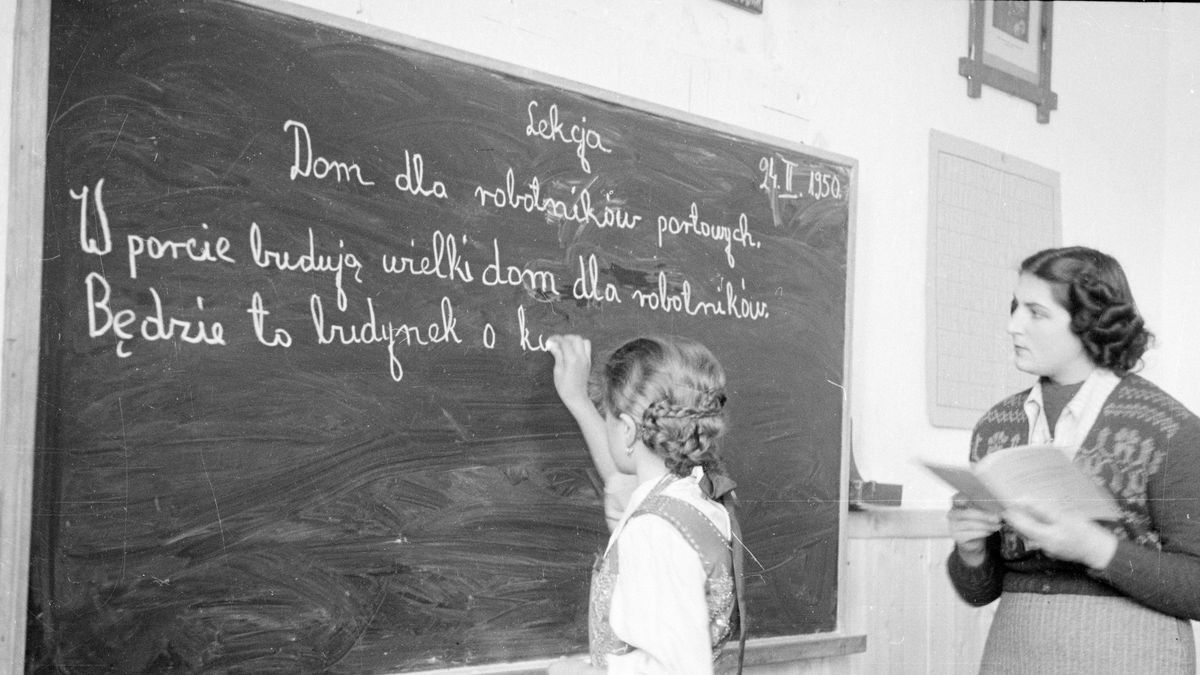 Lekcja
24.II.1950.
Dom dla robotników portowych.
W porcie budują wielki dom dla robotników.
Będzie to budynek o ku